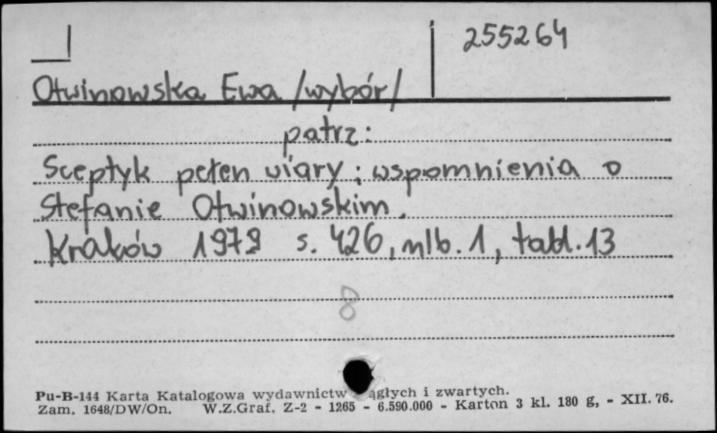 255264
Otwinowska Ewa /wybór/
patrz:
Sceptyk pełen wiary : wspomnienia o
Stefanie Otwinowskim.
Kraków 1979 s. 426, nlb. 1, tabl. 13
8
Pu-B-144 Karta Katalogowa wydawnictw ągłych i zwartych.
Zam. 1648/DW/On. W.Z.Graf. Z-2 - 1265 - 6.590.000 - Karton 3 kl. 180 g, - XII. 76.